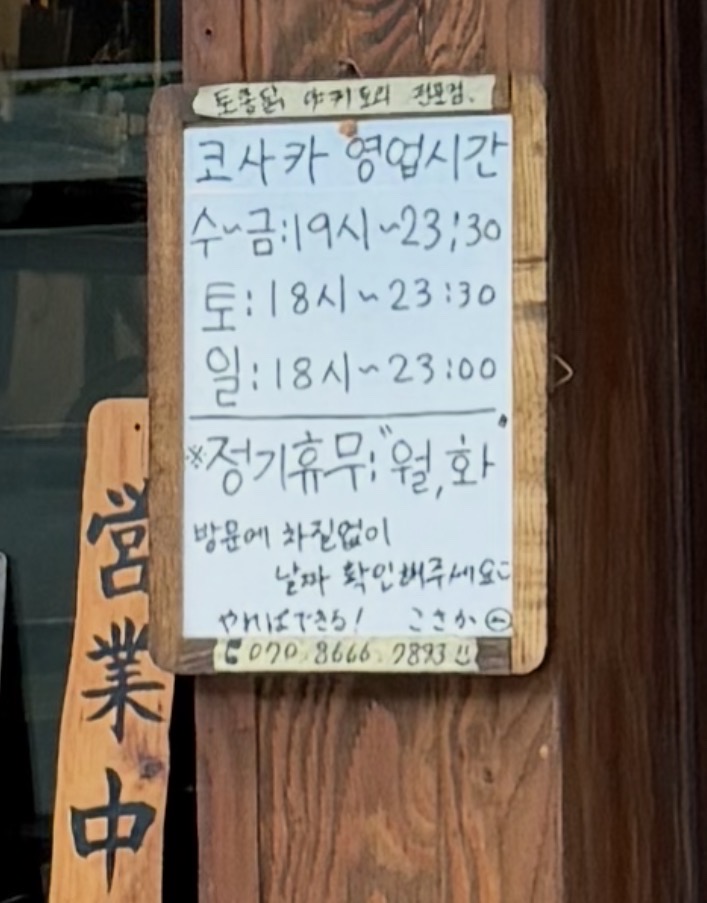 토종닭 야키토리 전문점.
코사카 영업시간
수~금:19시~23:30
토:18시~23:30
일:18시~23:00
※정기휴무:"월,화"
방문에 차질없이
날짜 확인해주세요
やればできる! こさか
070.8666.7893
営業中